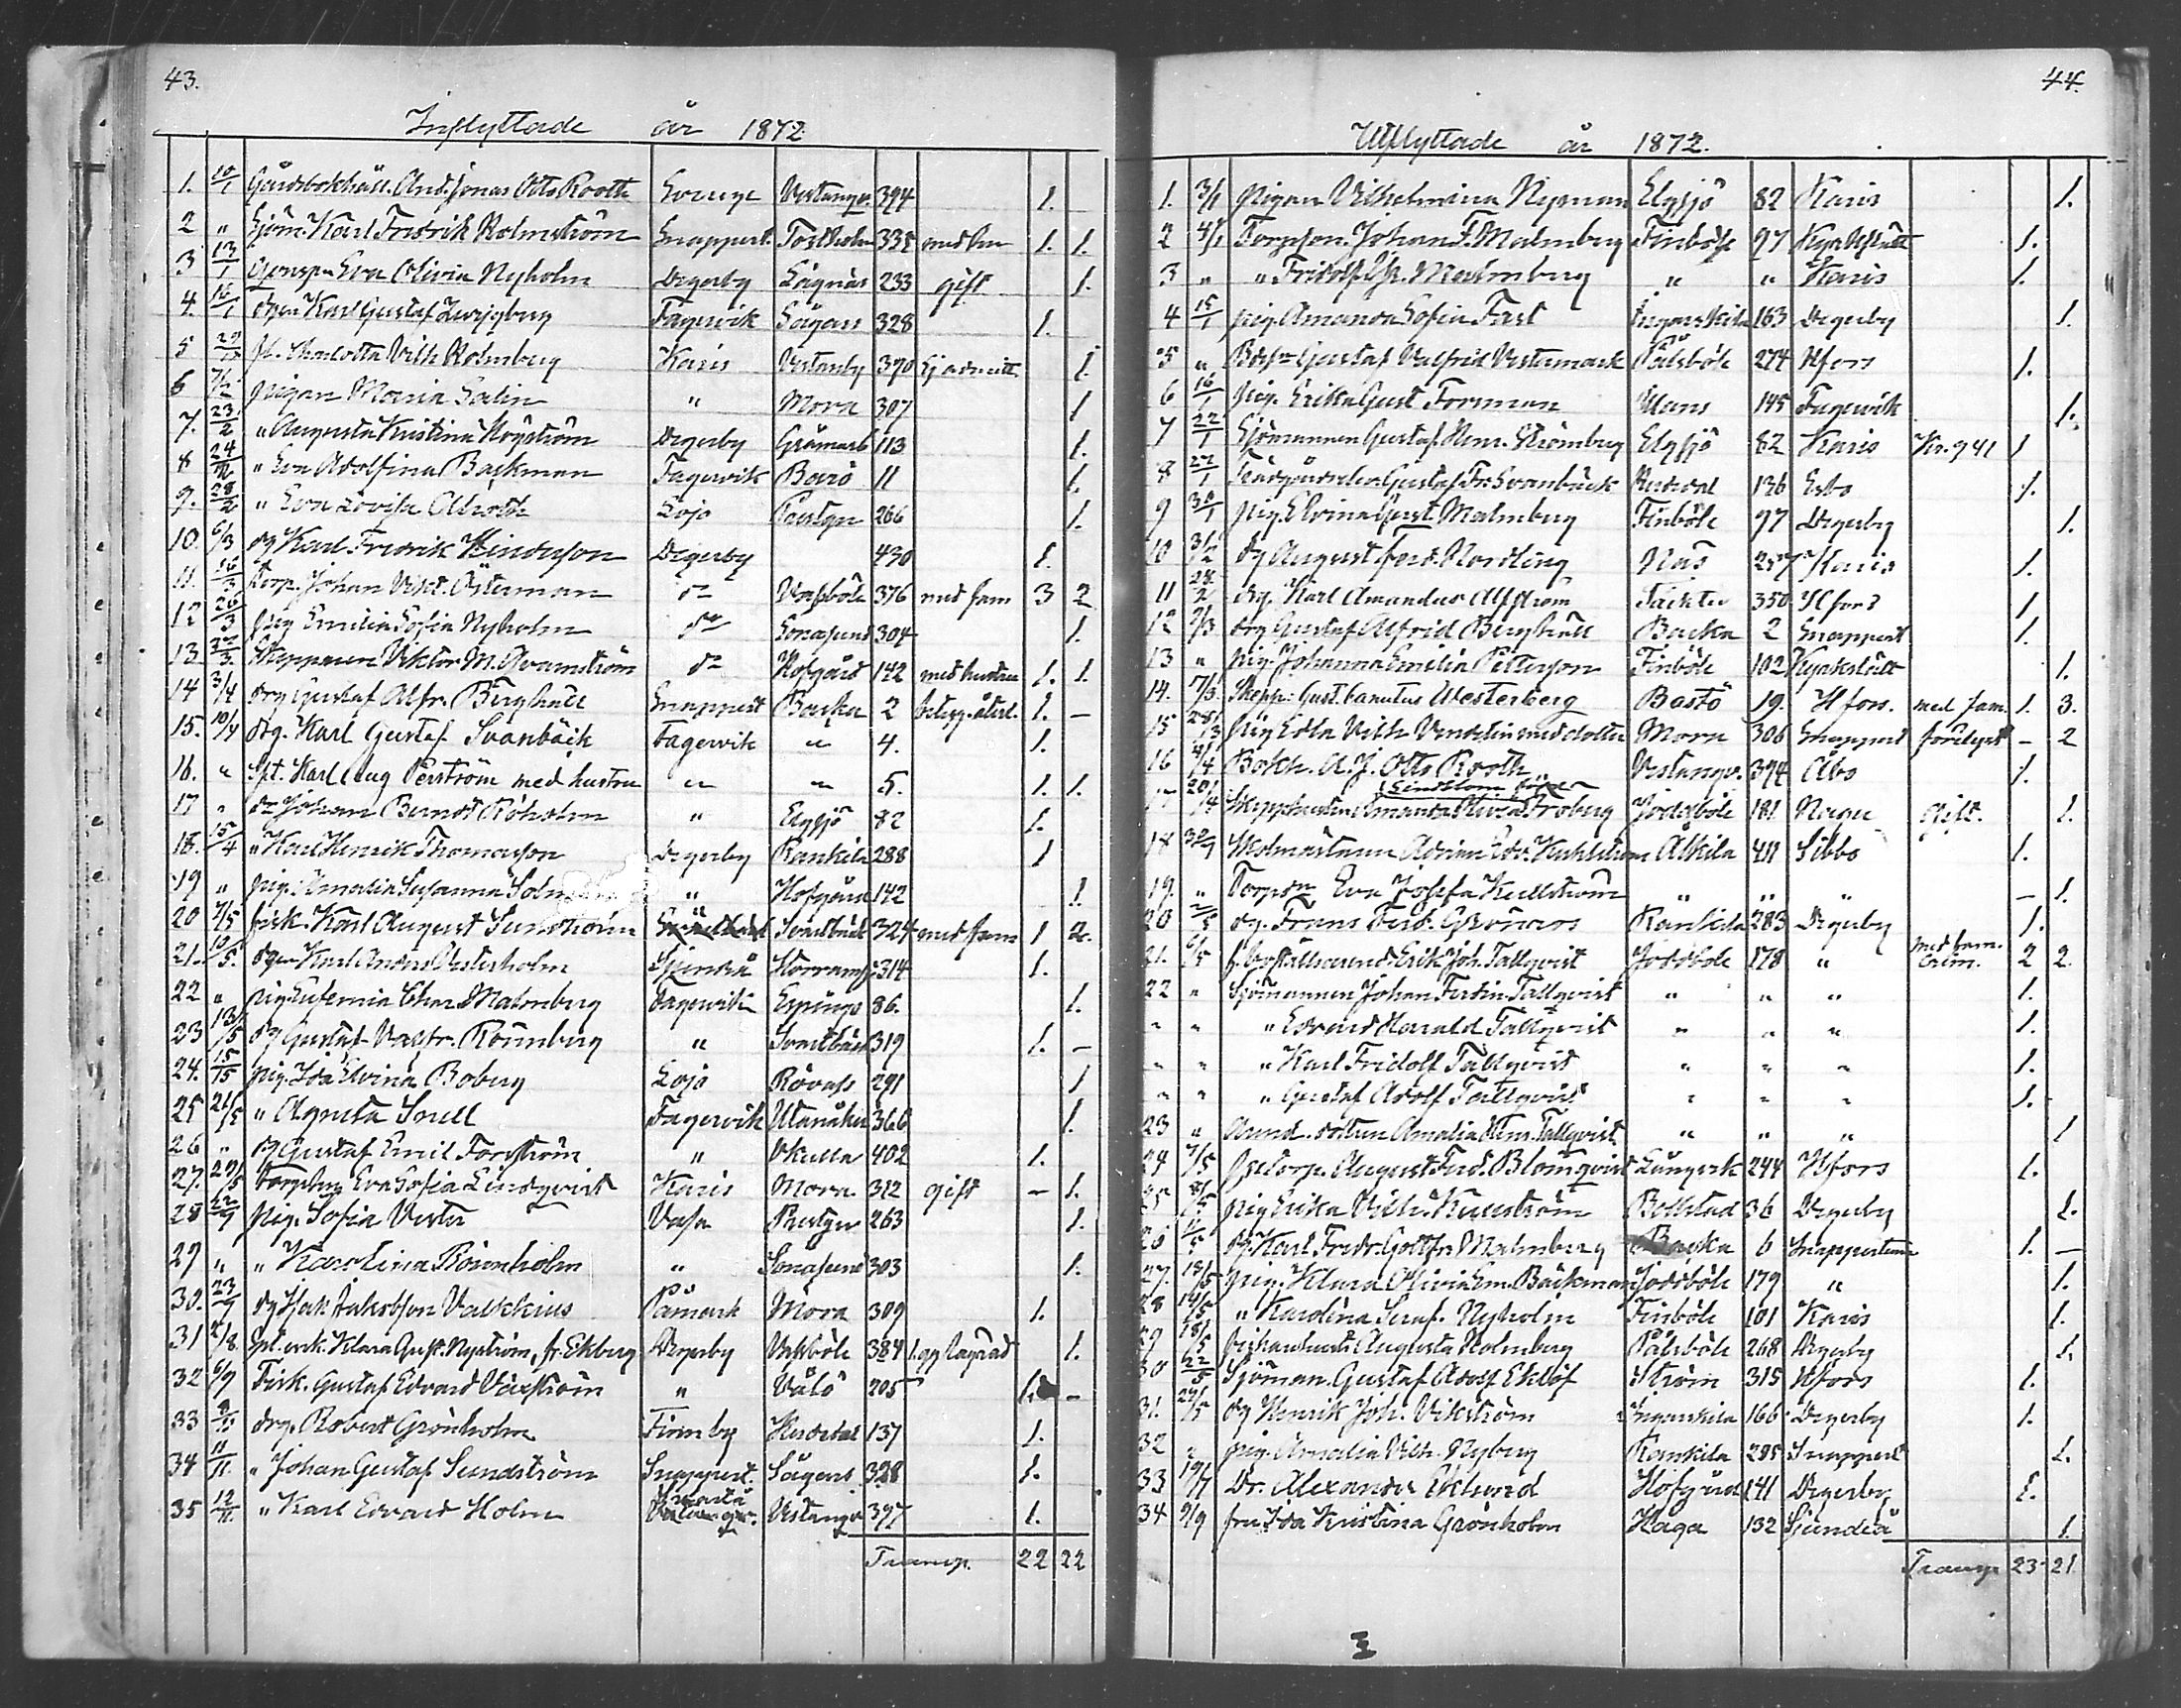 43.
Inflyttade år 1872.
1. 10/1 Gårdsbokhåll. And. Jonas Otto Rooth Sverige Vestanqv. 394 1.
2 " Sjöm. Karl Fredrik Holmström Snappert. Torsholm 335 med 1. 1.
3 13/1 Eva Olivia Nyholm Degerby Lågnäs 233 gift 1.
4. 16/1 Karl Gustaf Fagervik Sågars 328 1.
5 Charlotta Vilh. Holmberg Karis Vestanby 370 Ej admitt. 1.
6 7/2 pigan Maria Salin " Mora 307 1
7. 23/2 " Augusta Kristina Högström Degerby Gråmarb 113 1.
8 24/2 " Eva Adolfina Backman Fagervik Barö 11 1.
9. 28/2 " Eva Lovisa Alroth Lojo Prestgn 266 1.
10. 6/3 dg Karl Fredrik Degerby 430 1.
11. 16/3 Torp. Johan Vikt. Österman do Vassböle 376 med fam 3 2
12 26/3 pig Emilia Sofia Nyholm do Sonasund 304 1.
13. Skepparen Viktor M. Avamström do Hofgård 142 med hustru 1. 1.
14 3/4 drg Gustaf Alfr. Berghäll Snappert Backa 2 betyg. återl. 1. –
15. 10/4 dg. Karl Gustaf Svanbäck Fagervik " 4. 1.
16. " Karl Aug Perström med hustru " " 5. 1. 1.
17 " Johan Bernd Röholm " Elgsjö 82 1.
18. 15/4 " Karl Henrik Thomasson Degerby Rankila 288 1
19 " pig. Amalia Susanna " Hofgård 142 1.
20 7/5 fisk. Karl August Sundström Svartbäck 324 med fam 1 2.
21. 10/5. dgn Karl Anders Vesterholm Sjundeå Storramsjö 314 1.
22 " pig Eufemia Char. Malmberg Fagervik Espings 86. 1.
23 13/5 dg Gustaf Valfr. Rönnberg " Svartbäck 319 1. –
24. 15/5 pig. Ida Elvina Boberg Lojo Rövass 291 1
25 21/5 " Agneta Snell Fagervik Utanåker 366 1.
26 " dg Gustaf Emil Forsström " Vkulla 402 1.
27. 29/5 Eva Sofia Lindqvist Karis Mora 312 gift – 1.
28 pig. Sofia Vester Vasa Prestgn 263 1.
29 " " Karolina Rönnholm " Sonasund 303 1.
30. 23/7 dg Isak Jakobsson Valkkius Påmark Mora 309 1.
31 2/8. Klara Gust. Nyström, f. Ekberg Degerby Vassböle 384 1.
32 6/9 Fisk. Gustaf Edvard Växström " Vålö 205 1. –
33 drg. Robert Grönholm Finnby Krusdal 137 1.
34 11/11. " Johan Gustaf Sundström Snappert. Sågars 328 1.
35 12/11. " Karl Edvard Holm Vestanqv 397 1.
Transp. 22 22
44.
Utflyttade år 1872.
1. 3/1 pigan Vilhelmina Nyman Elgsjö 82 Karis 1.
2 4/1 Torpson Johan F. Malmberg Finböle 97 Kyrkslätt 1.
3 " " Fridolf Malmberg " " Karis 1.
4 15/1 pig. Amanda Sofia Fast Inganskila 163 Degerby 1.
5 " Gustaf Valfrid Vestermark Pålsböle 274 Hfors 1.
6 16/1 pig. Erika Gust Forsman 145 Fagervik 1.
7 22/1 Sjömannen Gustaf Hnr. Strömberg Elgsjö 82 Karis Kr. 941 1
8 22/1 Gustaf Fr. Svanbäck Krusdal 136 Esbo 1.
9 30/1 pig. Elvina Gust. Malmberg Finböle 97 Degerby 1.
10 3/2 dg August Ferd. Nordling Näs 257 Karis 1.
11 28/2 drg. Karl Amandus Alfström Täckter 350 Hfors 1
12 2/3 drg Gustaf Alfrid Berghäll Backa 2 Snappert 1.
13 " pig. Johanna Emilia Petterson Finböle 102 Kyrkslätt 1.
14. 7/3. Skepp. Gust. Canutus Westerberg Bastö 19. Hfors. med fam. 1. 3.
15 28/3 pig Edla Vilh Vendelin med dotter Mora 306 Snappert – 2
16 4/4 Bokh. A. J. Otto Rooth Vestanqv. 394 Åbo 1.
17 20/4 Amanda Olivia Froberg Joddböle 181 Nagu gift. 1.
18 30/4 Skolmästaren Adrian Edv. Kuhlström Ålkila 411 Sibbo 1.
19. " Eva Josefa Kullström " " " – 1.
20 2/5 dg. Frans Ferd. Grönroos Rankila 283 Degerby 1.
21. 6/5 Erik Joh. Tallqvist Joddböle 178 " med fam. 2 2.
22 " Sjömannen Johan Ferdin. Tallqvist " " " 1.
" " " Edvard Harald Tallqvist " " " 1.
" " " Karl Fridolf Tallqvist " " " 1.
" " " Gustaf Adolf Tallqvist " " " 1.
23 " dottren Amalia Hnr. Tallqvist " " " 1
24 7/5 August Ferd. Blomqvist Långvik 244 Hfors 1.
25 8/5 pig Erika Vilh. Kullström Bollstad 36 Degerby 1.
26 11/5 dg. Karl Fredr. Gottfr. Malmberg Backa 6 Snappertuna 1. –
27. 13/5 pig. Klara Olivia Em. Bäckman Joddböle 179 " 1.
28 14/5 " Karolina Seraf. Nyholm Finböle 101 Karis 1.
29 18/5 Augusta Holmberg Pålsböle 268 Degerby 1.
30 22/5 Sjöman. Gustaf Adolf Eklöf Ström 315 Hfors 1.
31. 29/5 dg Henrik Joh. Vikström Inganskila 166 Degerby 1.
32 " pig. Amalia Vilh. Nyberg Rankila 285 Snappert 1.
33 19/7 Dr. Alexander Eklund Hofgård 141 Degerby 1.
34 9/9 fru Ida Kristina Grönholm Haga 132 Sjundeå 1.
Transp 23 21.